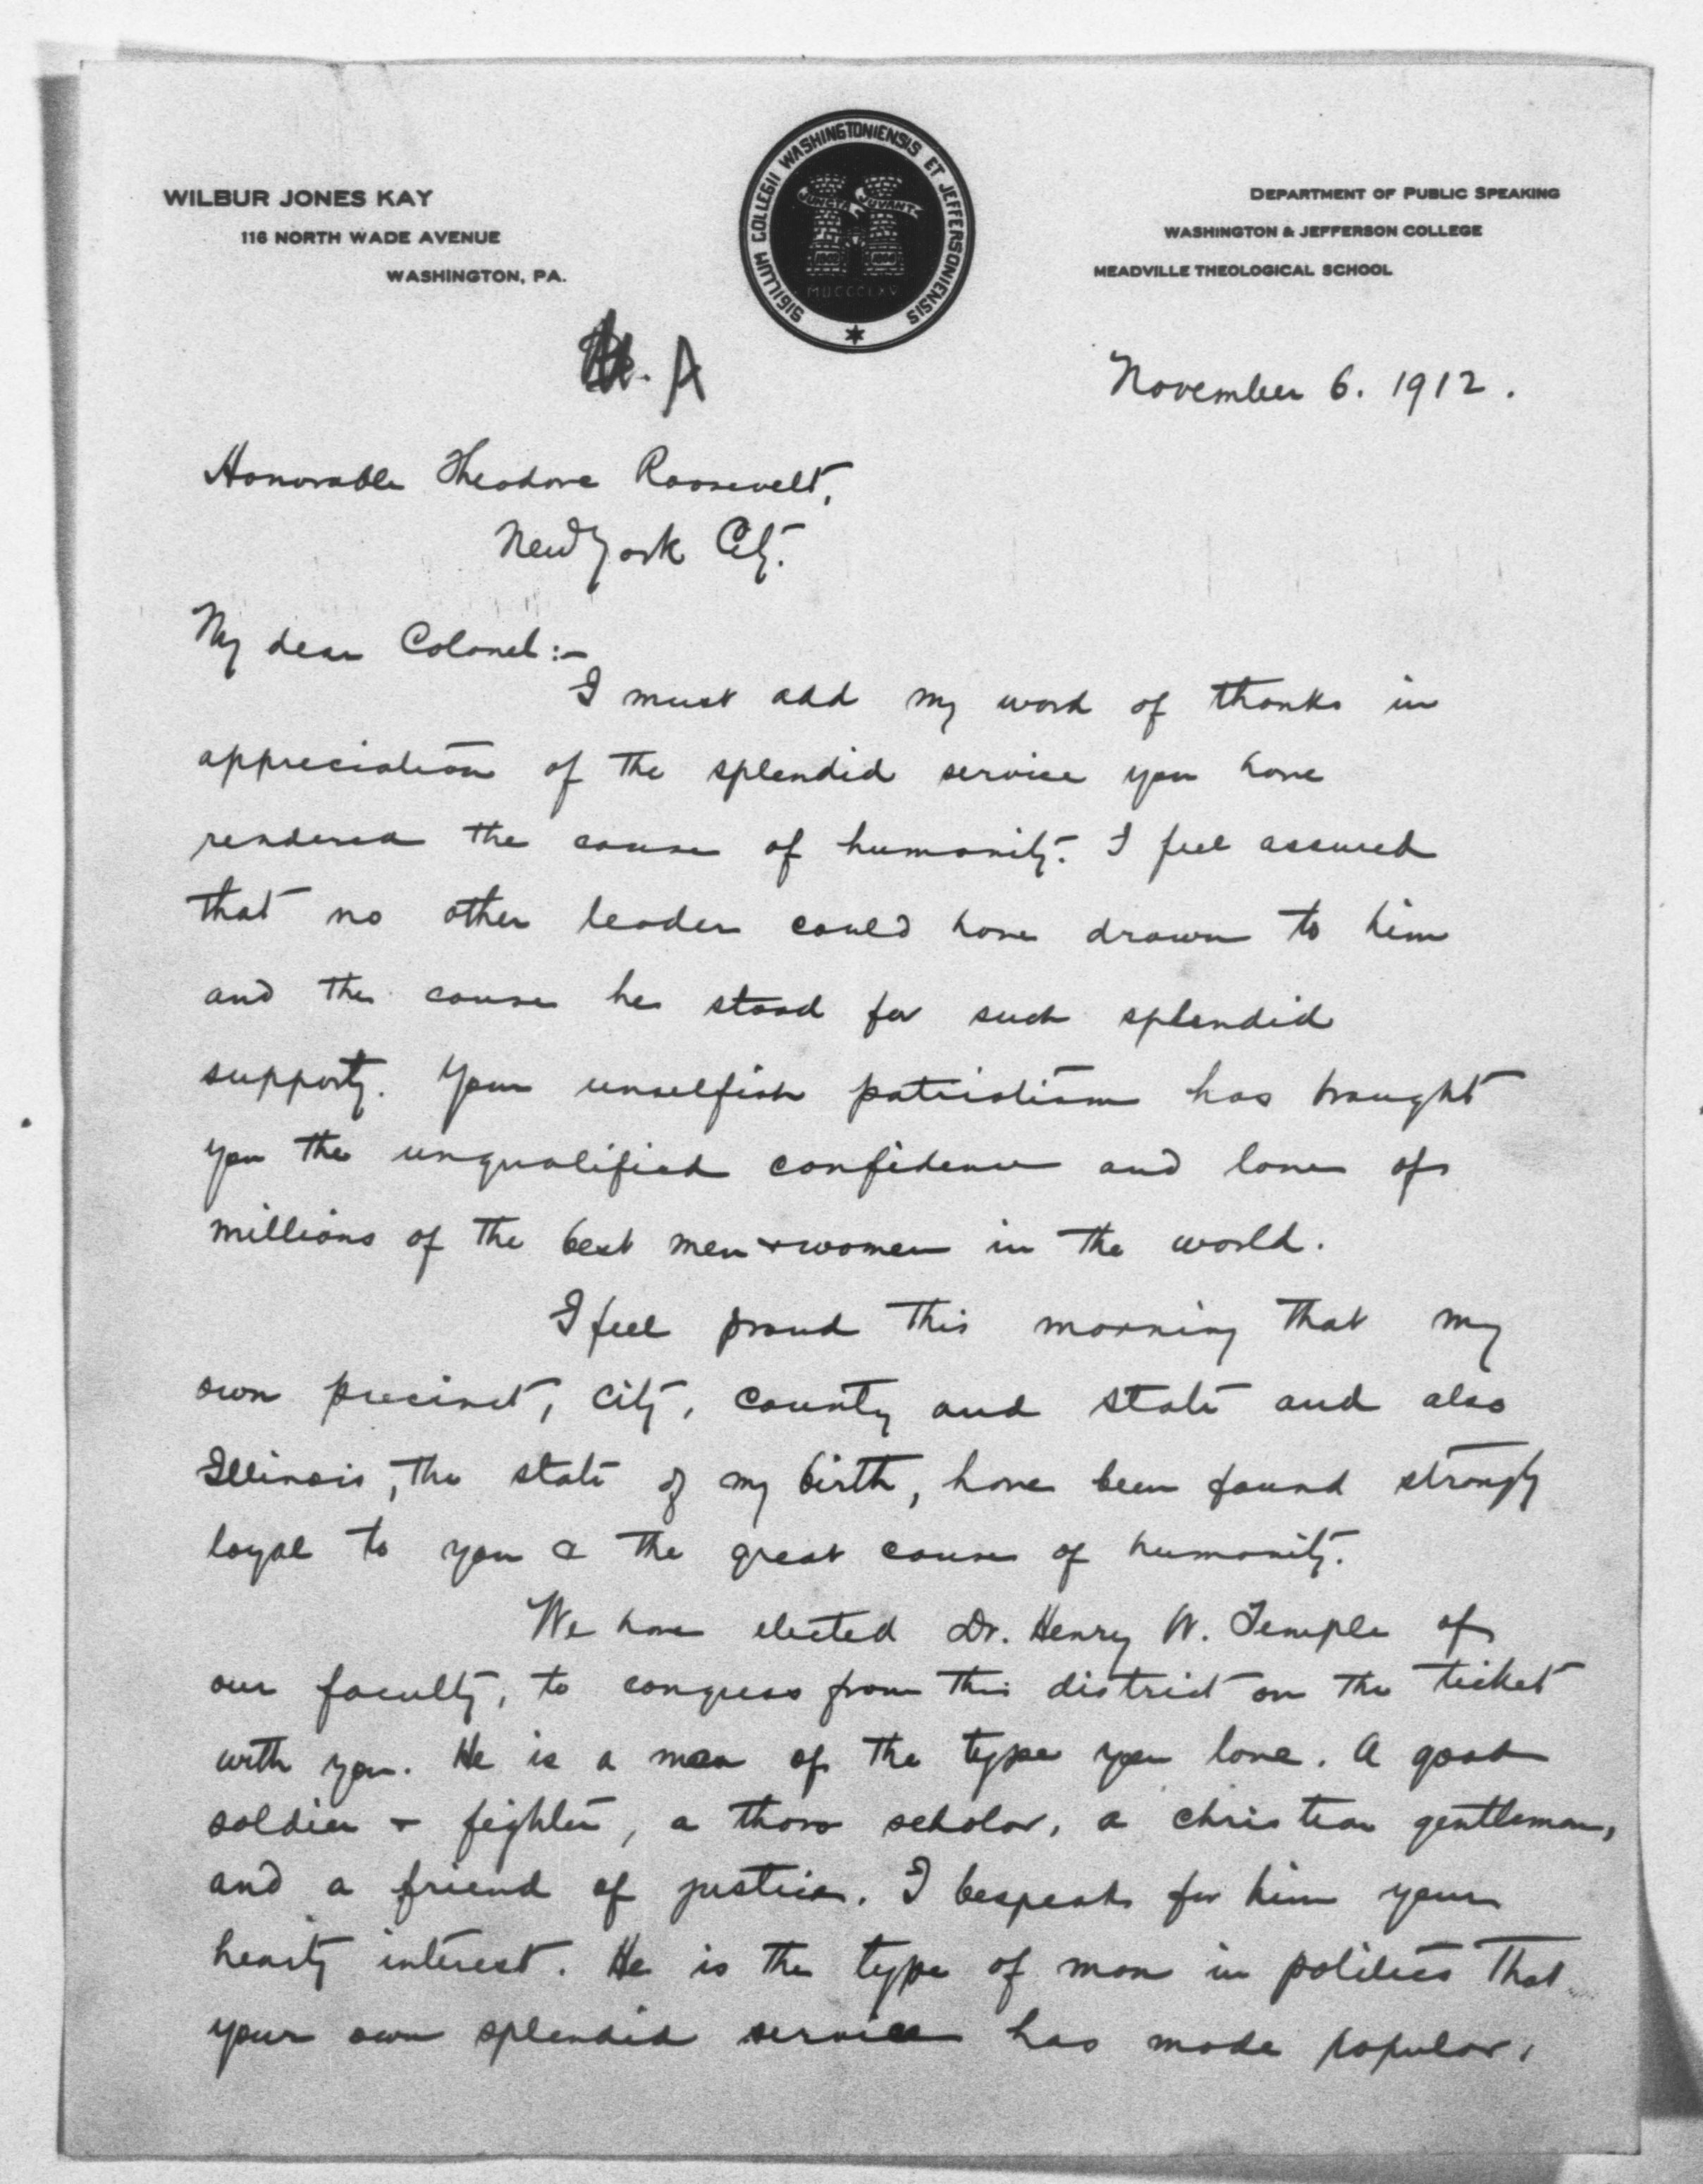 WILBUR JONES KAY
116 NORTH WADE AVENUE
WASHINGTON, PA.
SIGILLUM COLLEGII WASHINGTONIENSIS ET JEFFERSONIENSIS
JUNCTA JUVANT
MDCCCLXV
DEPARTMENT OF PUBLIC SPEAKING
WASHINGTON & JEFFERSON COLLEGE
MEADVILLE THEOLOGICAL SCHOOL
A
November 6. 1912.
Honorable Theodore Roosevelt,
New York City.
My dear Colonel:-
I must add my word of thanks in
appreciation of the splendid service you have
rendered the cause of humanity. I feel assured
that no other leader could have drawn to him
and the cause he stood for such splendid
support. Your unselfish patriotism has brought
you the unqualified confidence and love of
millions of the best men & women in the world.
I feel proud this morning that my
own precinct, city, county and state and also
Illinois, the state of my birth, have been found strongly
loyal to you & the great cause of humanity.
We have elected Dr. Henry W. Temple of
our faculty, to congress from this district on the ticket
with you. He is a man of the type you love. A good
soldier & fighter, a thoro scholar, a christian gentleman,
and a friend of justice. I bespeak for him your
hearty interest. He is the type of man in politics that
your own splendid service has made popular,